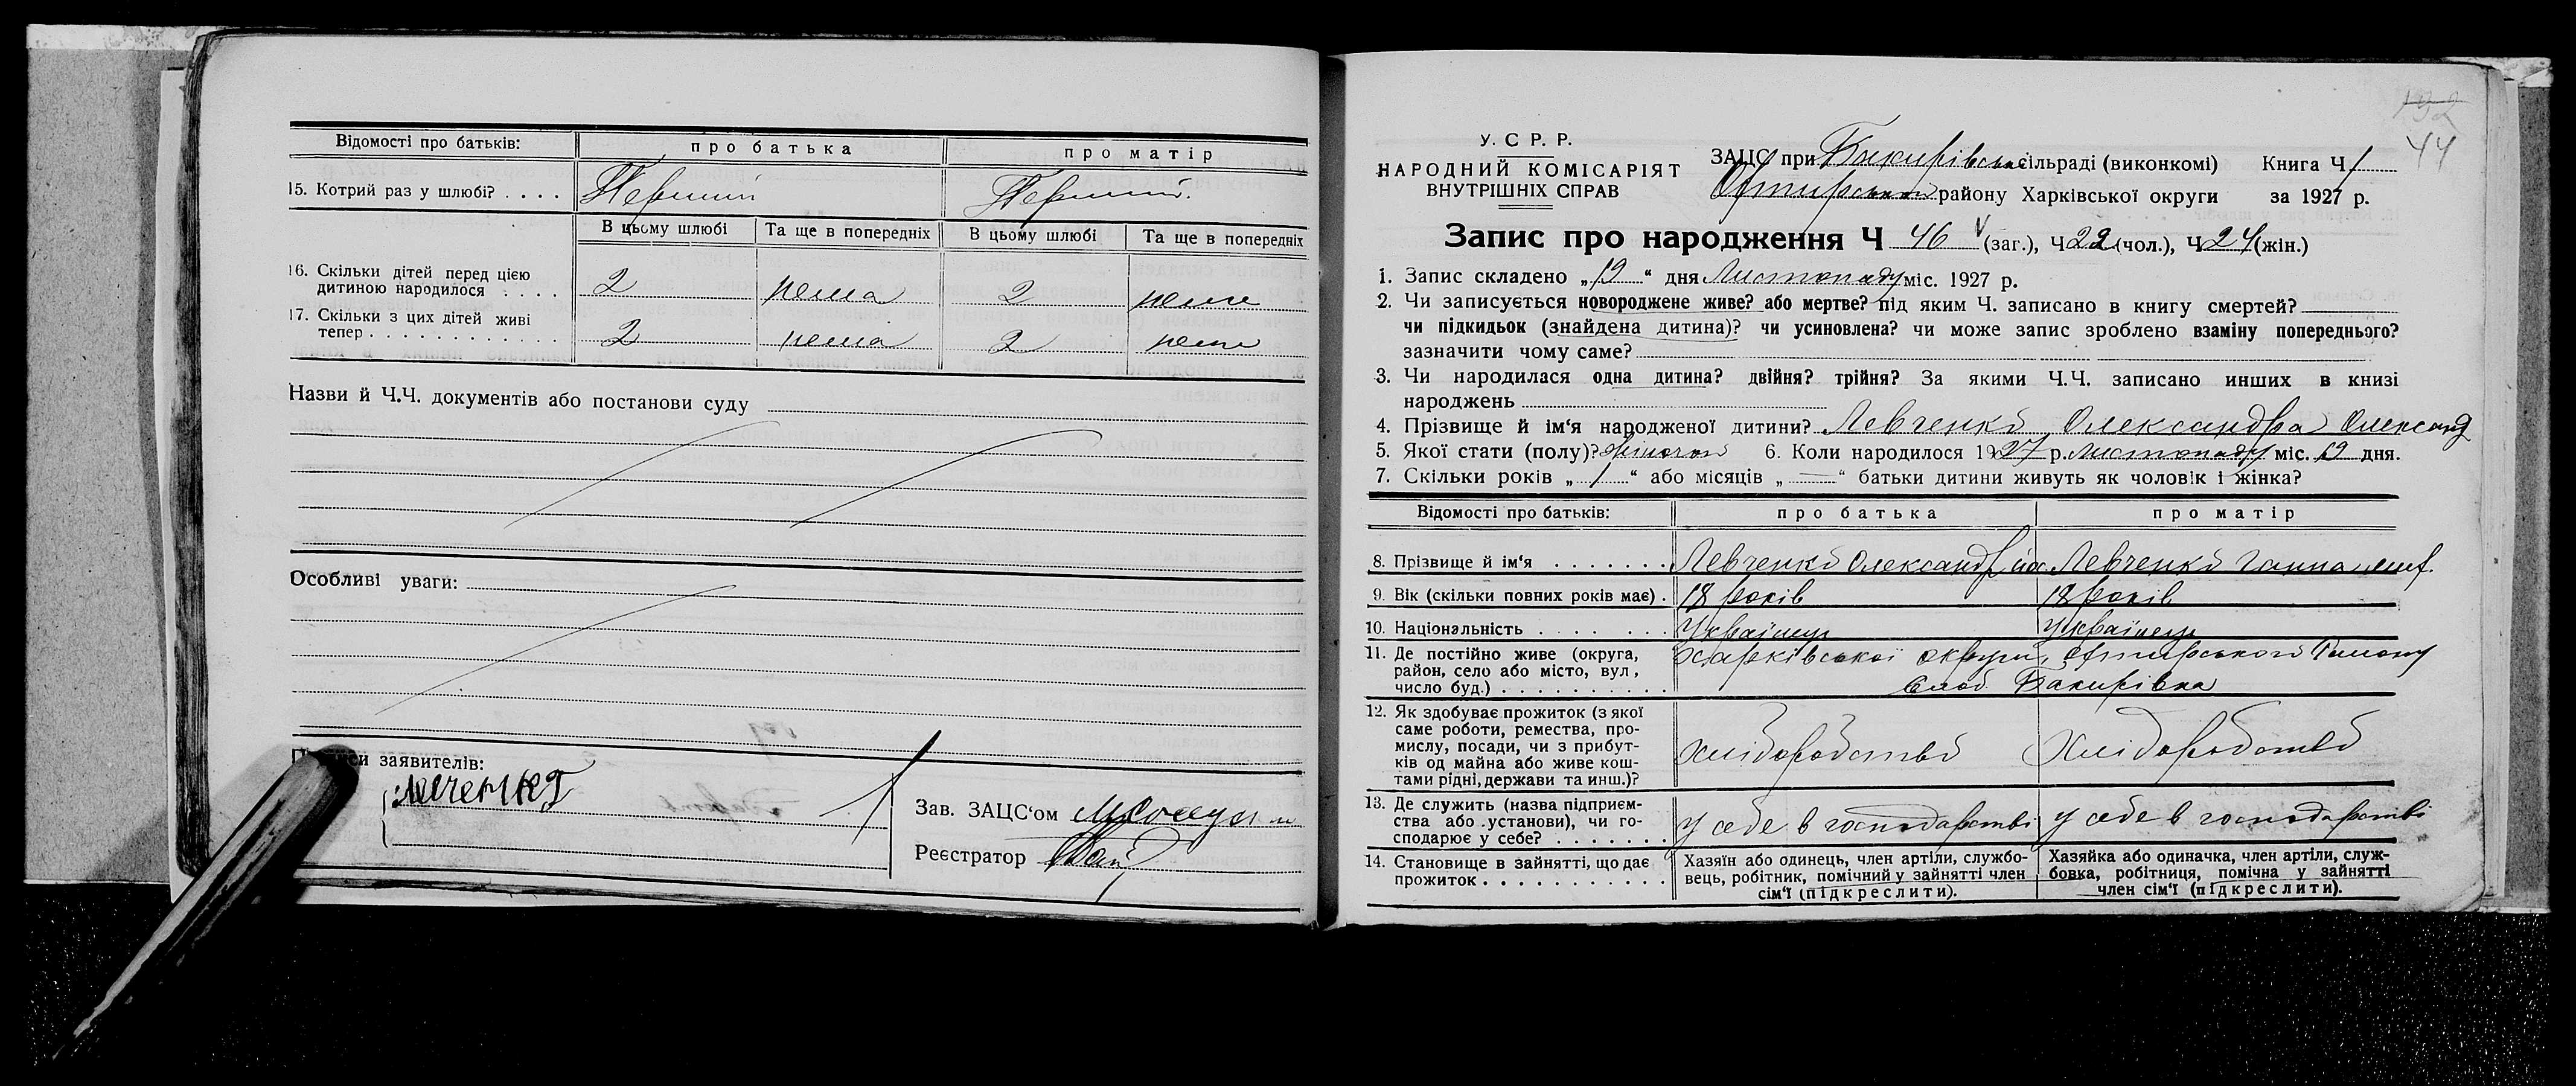 Відомості про батьків: про батька про матір
15. Котрий раз у шлюбі? . . . . Перший Перший.
В цьому шлюбі Та ще в попередніх В цьому шлюбі Та ще в попередніх
16. Скільки дітей перед цією
дитиною народилося . . . . 2 нема 2 нема
17. Скільки з цих дітей живі
тепер . . . . . . . . . . . . 2 нема 2 нема
Назви й Ч.Ч. документів або постанови суду
Особливі уваги:
заявителів:
Зав. ЗАЦС‘ом
Реєстратор
132
44
У. С. Р. Р.
НАРОДНИЙ КОМІСАРІЯТ
ВНУТРІШНІХ СПРАВ
ЗАЦС при Бакирівськ сільраді (виконкомі) Книга Ч 1
Охтирського району Харківської округи за 1927 р.
Запис про народження Ч 46 (заг.), Ч 22 (чол.), Ч 24 (жін.)
1. Запис складено „19“ дня Листопаду міс. 1927 р.
2. Чи записується новороджене живе? або мертве? під яким Ч. записано в книгу смертей?
чи підкидьок (знайдена дитина)? чи усиновлена? чи може запис зроблено взаміну попереднього?
зазначити чому саме?
3. Чи народилася одна дитина? двійня? трійня? За якими Ч.Ч. записано инших в книзі
народжень
4. Прізвище й ім‘я народженої дитини? Левченко Олександра Олександ
5. Якої стати (полу)? жіночої 6. Коли народилося 1927 р. Листопаду міс. 19 дня.
7. Скільки років „ 1 “ або місяців „ — “ батьки дитини живуть як чоловік і жінка?
Відомості про батьків: про батька про матір
8. Прізвище й ім‘я . . . . . . . Левченко Олександр Левченко Ганна
9. Вік (скільки повних років має) . 18 років 18 років
10. Національність . . . . . . . Українець Українець
11. Де постійно живе (округа, Харківської округи, Охтирського Району
район, село або місто, вул., Слоб. Бакирівка
число буд.) . . . . . . . . . . .
12. Як здобуває прожиток (з якої
саме роботи, ремества, про-
мислу, посади, чи з прибут-
ків од майна або живе кош- хліборобство Хліборобство
тами рідні, держави та инш.)?
13. Де служить (назва підприєм-
ства або установи), чи го- у себе в господарстві у себе в господарстві
сподарює у себе? . . . . . . .
14. Становище в зайнятті, що дає
прожиток . . . . . . . . . . .
Хазяїн або одинець, член артіли, службо-
вець, робітник, помічний у зайнятті член
сім‘ї (підкреслити).
Хазяйка або одиначка, член артіли, служ-
бовка, робітниця, помічна у зайнятті
член сім‘ї (підкреслити).